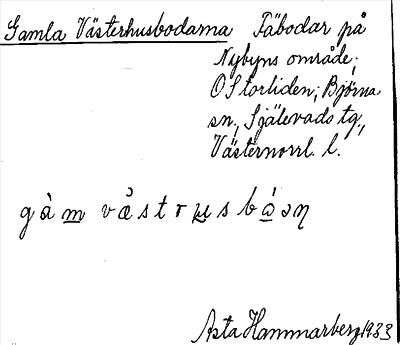 Gamla Västerhusbodarna Fäbodar på
Nybyns område,
O Storliden; Björna
sn., Själevads tg.,
Västernorrl. l.
gàm våstrusbòǝn
Asta Hammarberg 1933